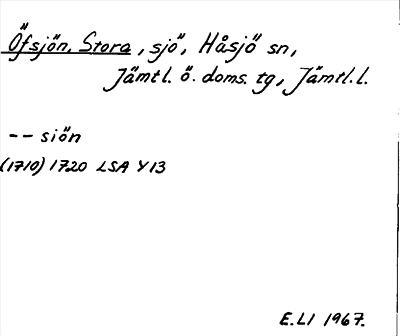 Öfsjön, Stora, sjö, Håsjö sn,
Jämtl. ö. doms. tg, Jämtl. l.
-- siön
(1710) 1720 LSA Y13
E.LI 1967.